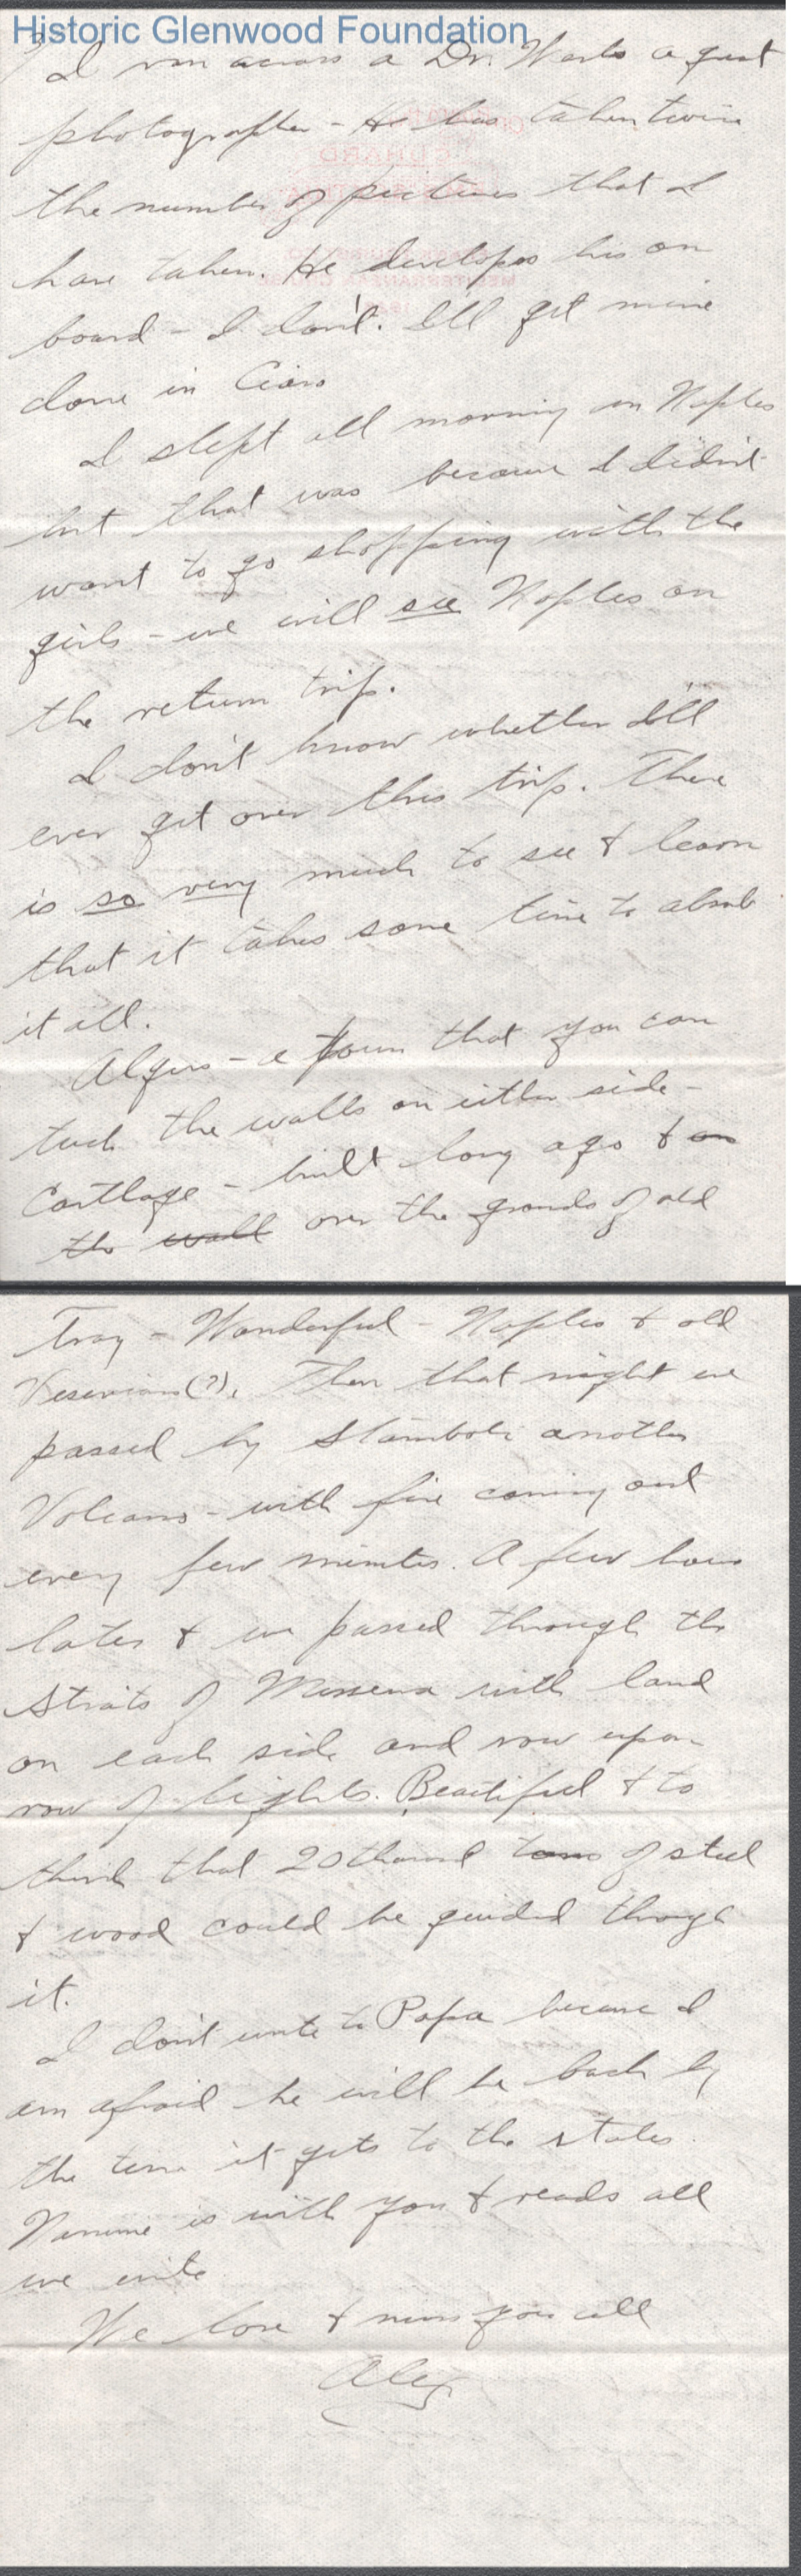 Historic Glenwood Foundation
I run across a Dr. a great
photographer - He has taken twice
the number of pictures that I
have taken. He developes his on
board - I don't. I'll get mine
done in Ciaro
I slept all morning in Naples
but that was because I didn't
want to go shopping with the
girls - we will see Naples on
the return trip.
I don't know whether I'll
ever get over this trip. There
is so very much to see & learn
that it takes some time to absorb
it all.
Algiers - a town that you can
touch the walls on either side -
Carthage - built long ago & on
the wall over the grounds of old
Troy - Wonderful - Naples & old
(?). Then that night we
passed by Stamboli another
Volcano - with fire coming out
every few minutes. A few hours
later & we passed through the
Straits of Messena with land
on each side and row upon
row of lights. Beautiful & to
think that 20 thousand tons of steel
& wood could be guided through
it.
I don't write to Papa because I
am afraid he will be back by
the time it gets to the states.
is with you & reads all
we write
We love & miss you all
Alex